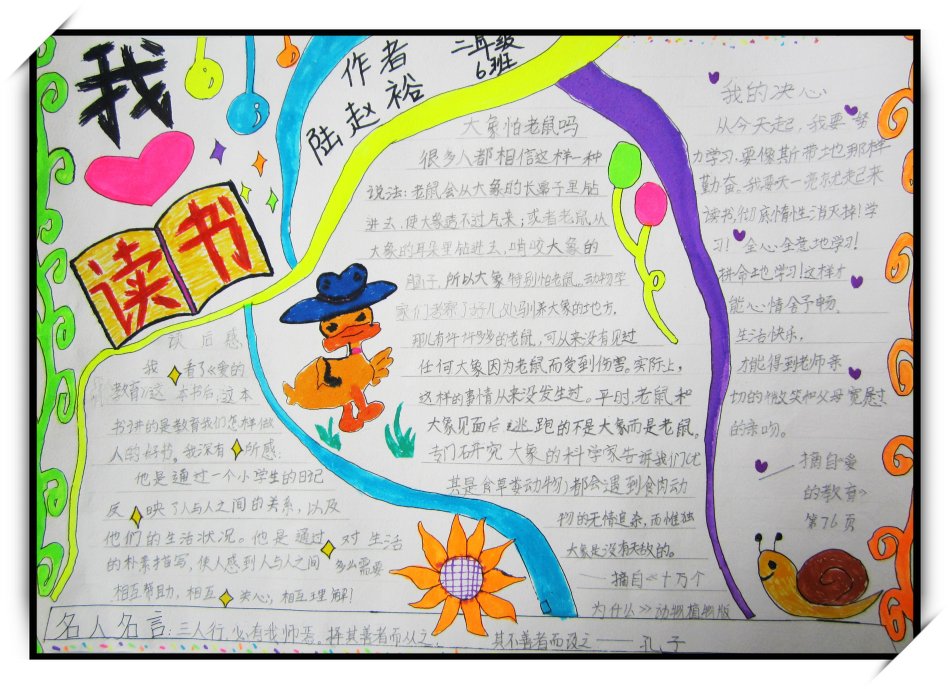 我
读书
作者
陆赵裕
三年级
6班
读后感
我看了《爱的
教育》这本书后,这本
书讲的是教育我们怎样做
人的好书。我深有所感:
他是通过一个小学生的日记
反映了人与人之间的关系,以及
他们的生活状况。他是通过对生活
的朴素描写,使人感到人与人之间多么需要
相互帮助,相互关心,相互理解!
大象怕老鼠吗
很多人都相信这样一种
说法:老鼠会从大象的长鼻子里钻
进去,使大象透不过气来;或者老鼠从
大象的耳朵里钻进去,啃咬大象的
脑子,所以大象特别怕老鼠。动物学
家们考察了好几处驯养大象的地方,
那儿有许许多多的老鼠,可从来没有见过
任何大象因为老鼠而受到伤害。实际上,
这样的事情从来没发生过。平时,老鼠和
大象见面后逃跑的不是大象而是老鼠。
专门研究大象的科学家告诉我们
其是食草类动物们都会遇到食肉动
物的无情追杀,而惟独
大象是没有天敌的。
——摘自《十万个
为什么》动物植物版
我的决心
从今天起,我要努
力学习,要像斯带地那样
勤奋。我要天一亮就起来
读书,彻底惰性消灭掉!学
习!全心全意地学习!
拼命地学习!这样才
能心情舍予畅,
生活快乐,
才能得到老师亲
切的微笑和父母宽慰过
的亲吻。
摘自《爱
的教育》
第76页
名人名言:三人行,必有我师焉。择其善者而从之,其不善者而改之——孔子